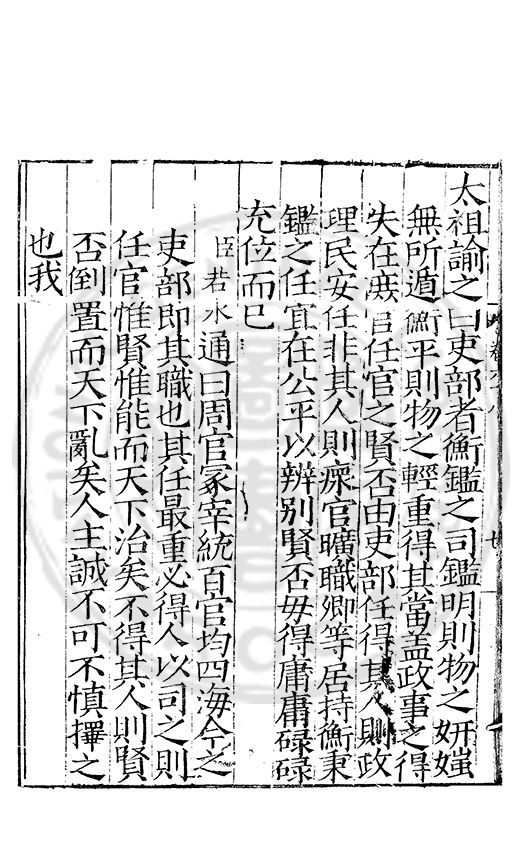 太祖諭之曰吏部者衡鑑之司鑑明則物之妍媸
無所遁衡平則物之輕重得其當盖政事之得
失在庶官任官之賢否由吏部任得其人則政
理民安任非其人則瘝官曠職卿等居持衡秉
鑑之任宜在公平以辨别賢否毋得庸庸碌碌
充位而已
臣若水通曰周官冢宰統百官均四海今之
吏部即其職也其任最重必得人以司之則
任官惟賢惟能而天下治矣不得其人則賢
否倒置而天下亂矣人主誠不可不慎擇之
也我